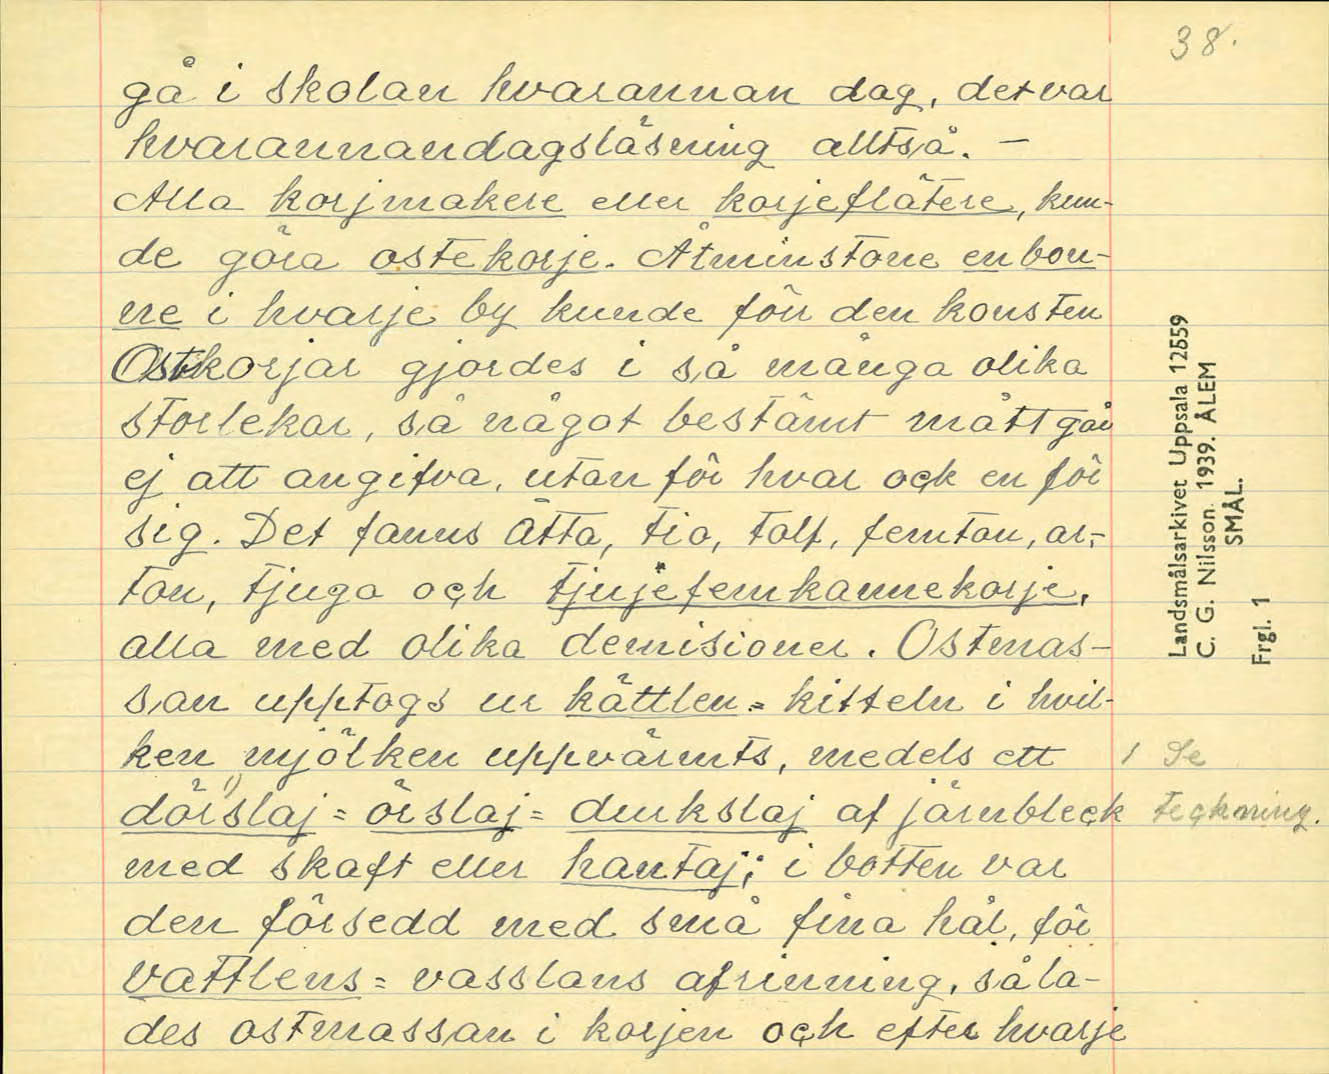 38.
gå i skolan hvarannan dag, det var
hvarannandagsläsning alltså. –
Alla korjmakere eller korjeflätere, kun-
de göra ostekorje. Åtminstone en bon-
ne i hvarje by kunde för den konsten
Ostkorjar gjordes i så många olika
storlekar, så något bestämt mått går
ej att angifva, utan för hvar och en för
sig. Det fanns åtta, tio, tolf, femton, ar-
ton, tjuga och tjujefemkannekorje,
alla med olika demisioner. Ostmas-
san upptogs ur kättlen = kitteln i hvil-
ken mjölken uppvärmts, medels ett
dörslaj 1) = örslaj = durkslaj af järnbleck
med skaft eller hantaj; i botten var
den försedd med små fina hål, för
vattlens = vasslans afrinning, såla-
des ostmassan i korjen och efter hvarje
1 Se
teckning.
Landsmålsarkivet Uppsala 12559
C. G. Nilsson. 1939. ÅLEM
SMÅL.
Frgl. 1